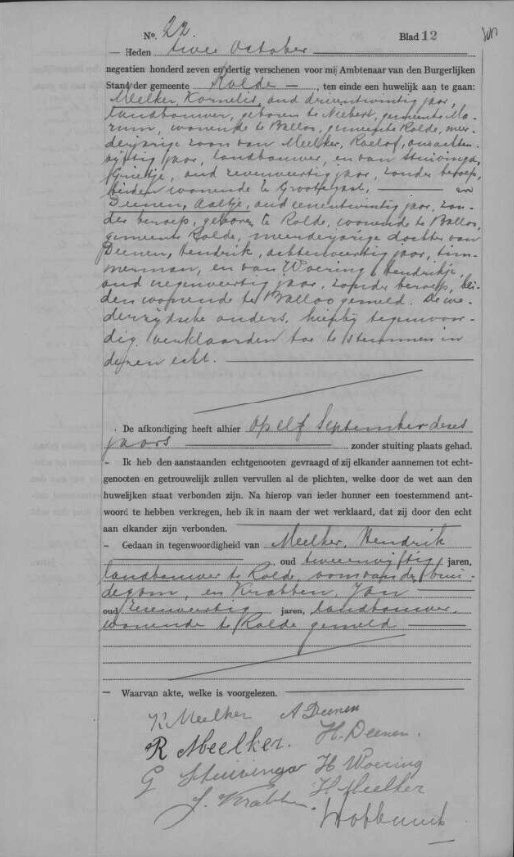 No. 22. Blad 12
— Heden twee October
negentien honderd zeven en dertig verschenen voor mij Ambtenaar van den Burgerlijken
Stand der gemeente Rolde — , ten einde een huwelijk aan te gaan:
Meelker, Kornelis, oud drieentwintig jaar,
landbouwer, geboren te Niebert, gemeente Ma-
rum, wonende te Balloo, gemeente Rolde, meer-
derjarige zoon van Meelker, Roelof, oud achten-
vijftig jaar, landbouwer, en van Stuivinga,
Grietje, oud zevenveertig jaar, zonder beroep,
beiden wonende te Grootegast, — en
Deenen, Aaltje, oud eenentwintig jaar, zon-
der beroep, geboren te Rolde, wonende te Balloo,
gemeente Rolde, meerderjarige dochter van
Deenen, Hendrik, achtenveertig jaar, tim-
merman, en van Woering, Hendrikje,
oud negenveertig jaar, zonder beroep, bei-
den wonende te Balloo gemeld. De we-
derzijdsche ouders, hierbij tegenwoor-
dig, verklaarden toe te stemmen in
dezen echt.
De afkondiging heeft alhier op elf September dezes
jaars — zonder stuiting plaats gehad.
— Ik heb den aanstaanden echtgenooten gevraagd of zij elkander aannemen tot echt-
genooten en getrouwelijk zullen vervullen al de plichten, welke door de wet aan den
huwelijken staat verbonden zijn. Na hierop van ieder hunner een toestemmend ant-
woord te hebben verkregen, heb ik in naam der wet verklaard, dat zij door den echt
aan elkander zijn verbonden.
— Gedaan in tegenwoordigheid van Meelker, Hendrik
oud tweeenvijftig jaren,
landbouwer te Rolde, oom van den brui-
degom, en Krabben, Jan —
oud zevenveertig jaren, landbouwer,
wonende te Rolde gemeld —
— Waarvan akte, welke is voorgelezen.
K Meelker A Deenen
R Meelker. H. Deenen.
G Stuivinga H Woering
J. Krabben. H Meelker